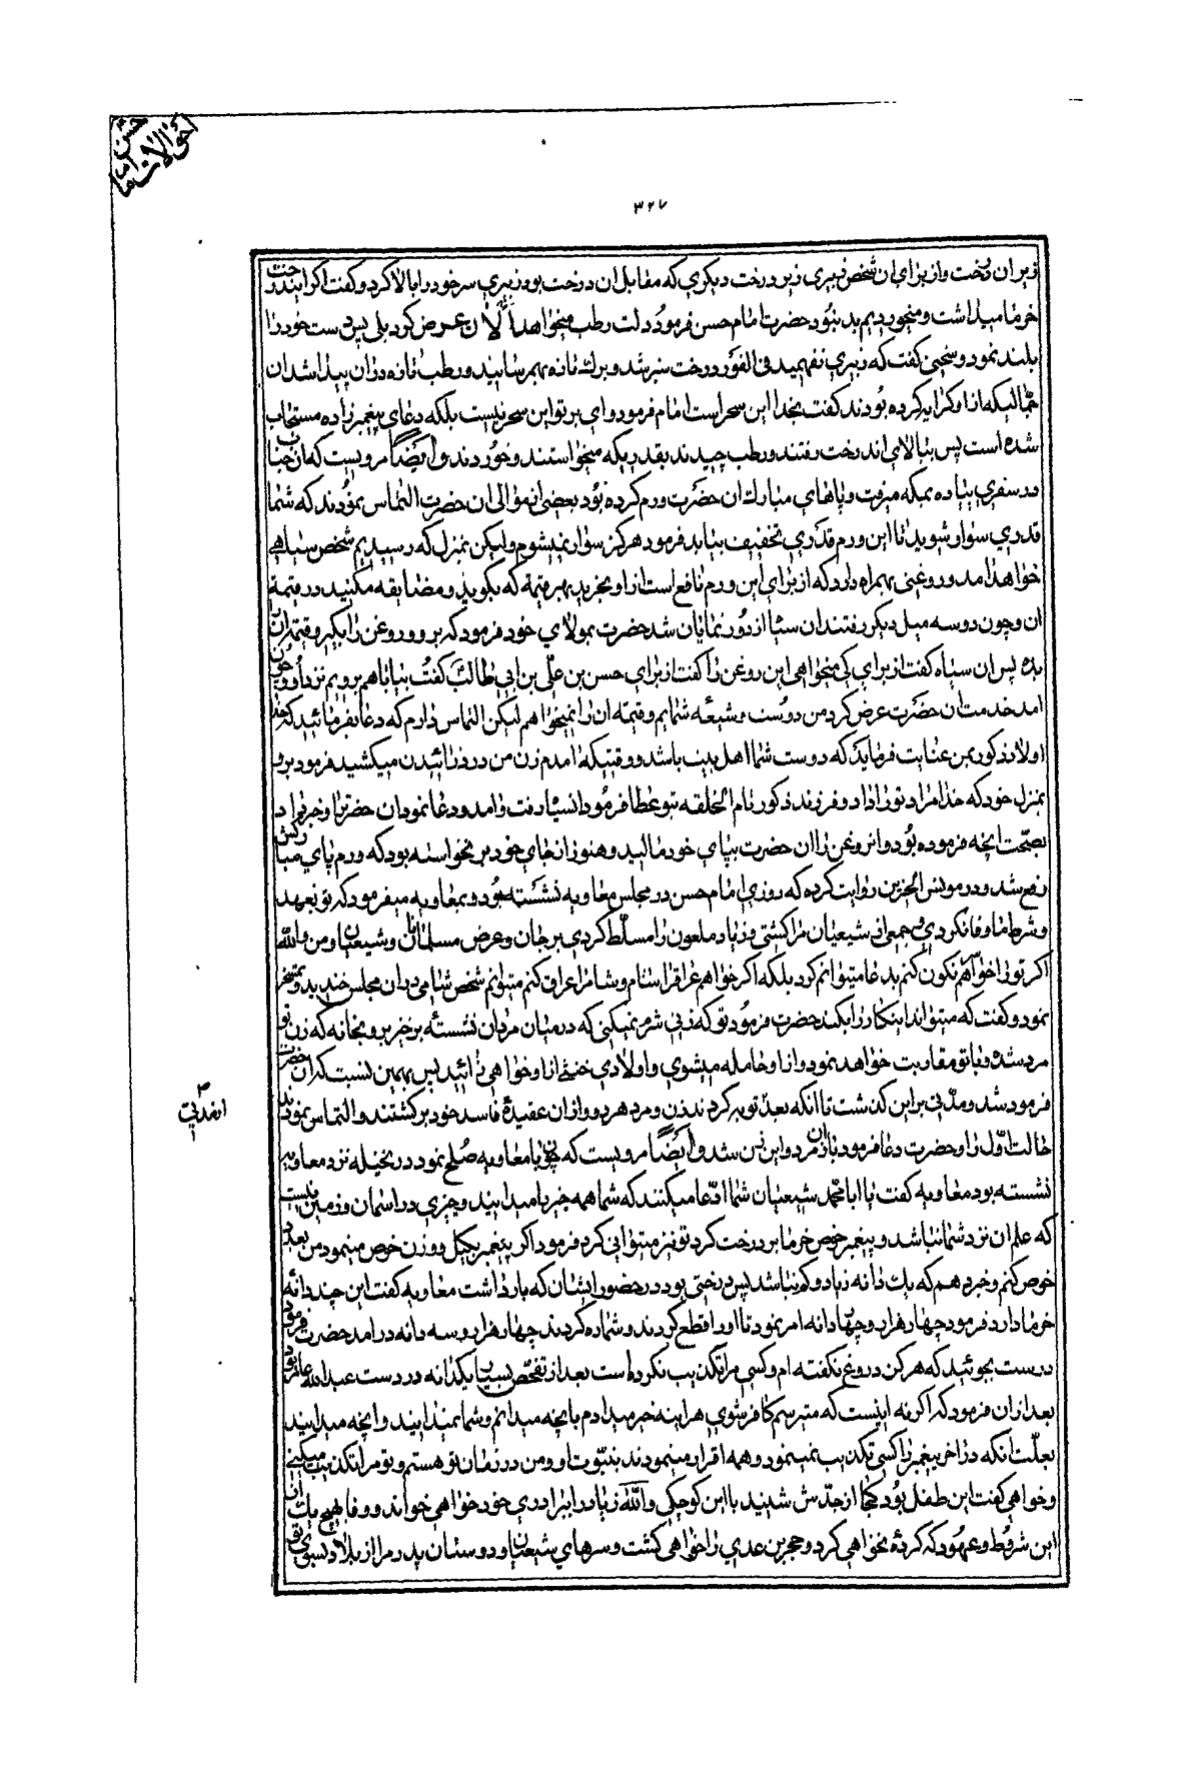 احوالات امام حسن
۳۲۷
زیر ان درخت و از برای ان شخص زبیری زیر درخت دیکری که مقابل ان درخت بود زبیری سر خود را بالا کرد و کفت اکر این درخت
خرما میداشت و میخوردیم بد نبود حضرت امام حسن فرمود دلت رطب میخواهد الان عرض کرد بلی پس دست خود را
بلند نمود و سخنی کفت که زبیری نفهمید فی الفور درخت سبز شد و برک تازه بهم رسانید و رطب تازه دران پیدا شد ان
جمالیکه از او کرایه کرده بودند کفت بخدا این سحر است امام فرمود وای بر تو این سحر نیست بلکه دعای پیغمبر زاده مستجاب
شده است پس ببالای اندرخت رفتند و رطب چیدند بقدریکه میخواستند و خوردند و ایضا مرویست که ان جناب
در سفری پیاده بمکه میرفت و پاهای مبارک ان حضرت ورم کرده بود بعضی از موالی ان حضرت التماس نمودند که شما
قدری سوار شوید تا این ورم قدری تخفیف بیابد فرمود هرکز سوار نمیشوم ولیکن بمنزل که رسیدیم شخص سیاهی
خواهد امد و روغنی بهمراه دارد که از برای این ورم نافع است از او بخرید بهر قیمة که بکوید و مضایقه مکنید در قیمة
ان و چون دو سه میل دیکر رفتند ان سیاه از دور نمایان شد حضرت بمولای خود فرمود که برو و روغن را بکیر و قیمة ان
بده پس ان سیاه کفت از برای کی میخواهی این روغن را کفت از برای حسن بن علی بن ابی طالب کفت بیا با هم برویم نزد او و چون
امد خدمت ان حضرت عرض کرد من دوست و شیعه شمایم و قیمة ان را نمیخواهم لیکن التماس دارم که دعا بفرمائید که خدا
اولاد ذکور بمن عنایت فرماید که دوست شما اهل بیت باشد و وقتیکه امدم زن من درد زائیدن میکشید فرمود برو
بمنزل خود که خدا مراد تو را داد و فرزند ذکور تام الخلقه بتو عطا فرمود ان سیاه رفت و امد و دعا نمود ان حضرترا و خبر داد
بصحت انچه فرموده بود و ان روغن را ان حضرت بپای خود مالید و هنوز از جای خود بر نخواسته بود که ورم پای مبارکش
رفع شد و در مونس الحزین روایت کرده که روزی امام حسن در مجلس معاویه نشسته بود و بمعاویه میفرمود که تو بعهد
و شرط ما وفا نکردی و جمعی از شیعیان مرا کشتی و زیاد ملعون را مسلط کردی بر جان و عرض مسلمانان و شیعیان و من والله
اکر تو را خواهم نکون کنم بدعا میتوانم کرد بلکه اکر خواهم عراقرا شام و شامرا عراق کنم میتوانم شخص شامی دران مجلس خندید و تمسخر
نمود و کفت که میتواند اینکار را بکند حضرت فرمود تو که زنی شرم نمیکنی که در میان مردان نشستهٔ برخیز برو بخانه که زن تو
مرد شده و با تو مقاربت خواهد نمود و از او حامله میشوی و اولادی خنثی از او خواهی زائید پس بهمین نسبت که ان حضرت
فرمود شد و مدتی براین کذشت تا انکه بعد توبه کردند زن و مرد هر دو و ازان عقیدهٔ فاسد خود برکشتند و التماس نمودند
حالت اول را و حضرت دعا فرمود باز ان مرد و این زن شد و ایضا مرویست که چون با معاویه صلح نمود در نخیله نزد معاویه
نشسته بود معاویه کفت یا ابا محمد شیعیان شما ادعا میکنند که شما همه چیز را میدانید و چیزی در اسمان و زمین نیست
که علم ان نزد شما نباشد و پیغمبر خرص خرما بر درخت کرد تو نیز میتوانی کرد فرمود اکر پیغمبر بکیل و وزن خرص مینمود من بعدد
خرص کنم و خبر دهم که یک دانه زیاد و کم نباشد پس درختی بود در حضور ایشان که بار داشت معاویه کفت این چند دانه
خرما دارد فرمود چهار هزار و چهار دانه امر نمود تا انرا قطع کردند و شماره کردند چهار هزار و سه دانه درامد حضرت فرمود
درست بجوئید که هرکز دروغ نکفته ام و کسی مرا تکذیب نکرده است بعد از تفحص بسیار یکدانه در دست عبدالله عامر بود
بعد ازان فرمود که اکر نه اینست که میترسم کافر شوی هراینه خبر میدادم بانچه میدانم و شما نمیدانید و انچه میدانید
بعلت انکه در اخر پیغمبر را کسی تکذیب نمینمود و همه اقرار مینمودند بنبوت او و من در زمان تو هستم و تو مرا تکذیب میکنی
و خواهی کفت این طفل بود کجا از جدش شنید با این کوچکی والله زیاد را برادر خود خواهی خواند و وفا بهیچ یک از
این شروط و عهود که کردهٔ نخواهی کرد و حجر بن عدی را خواهی کشت و سرهای شیعیان و دوستان پدر مرا از بلاد بسوی تو